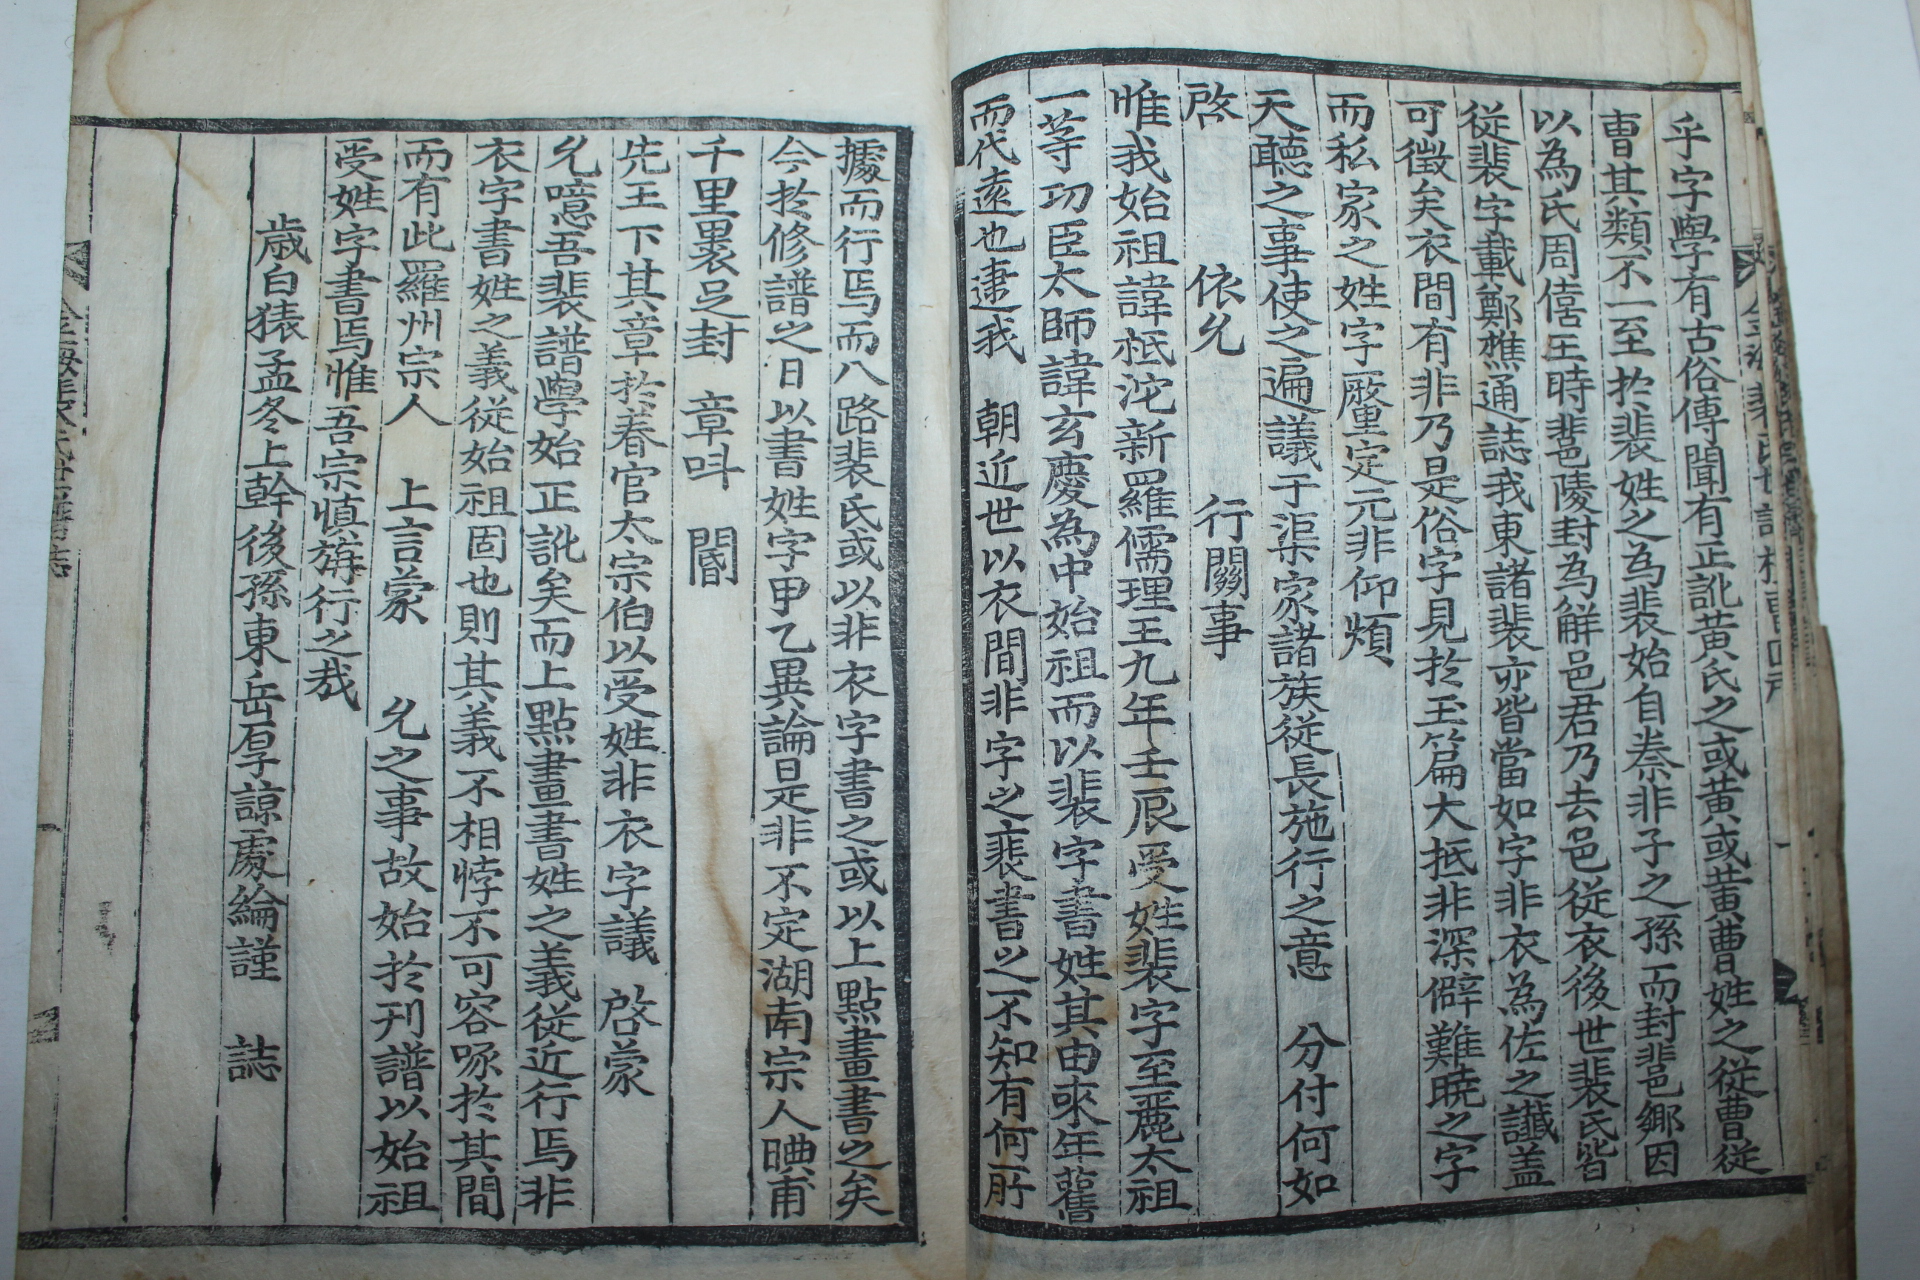 乎字學有古俗傳聞有正訛黃氏之或黄或黃曹姓之從曹從
曺其類不一至於裴姓之為裴始自秦非子之孫而封𨛬鄉因
以為氏周僖王時𨛬陵封為解邑君乃去邑從衣後世裴氏皆
從裴字載鄭樵通誌我東諸裴亦皆當如字非衣為佐之讖盖
可徵矣衣間有非乃是俗字見於玉篇大抵非深僻難曉之字
而私家之姓字釐定元非仰煩
天聽之事使之遍議于渠家諸族從長施行之意 分付何如
啓 依允 行關事
惟我始祖諱祗沱新羅儒理王九年壬辰受姓裴字至麗太祖
一等功臣太師諱玄慶為中始祖而以裴字書姓其由來年舊
而代遠也逮我 朝近世以衣間非字之裵書之不知有何所
據而行焉而八路裴氏或以非衣字書之或以上點畫書之矣
今於修譜之日以書姓字甲乙異論是非不定湖南宗人㬲甫
千里裹足封 章呌 閽
先王下其章於春官太宗伯以受姓非衣字議 啓蒙
允噫吾裴譜學始正訛矣而上點畫書姓之義從近行焉非
衣字書姓之義從始祖固也則其義不相悖不可容啄於其間
而有此羅州宗人 上言蒙 允之事故始於刊譜以始祖
受姓字書焉惟吾宗慎旃行之哉
歲白猿孟冬上幹後孫東岳厚諒處綸謹 誌